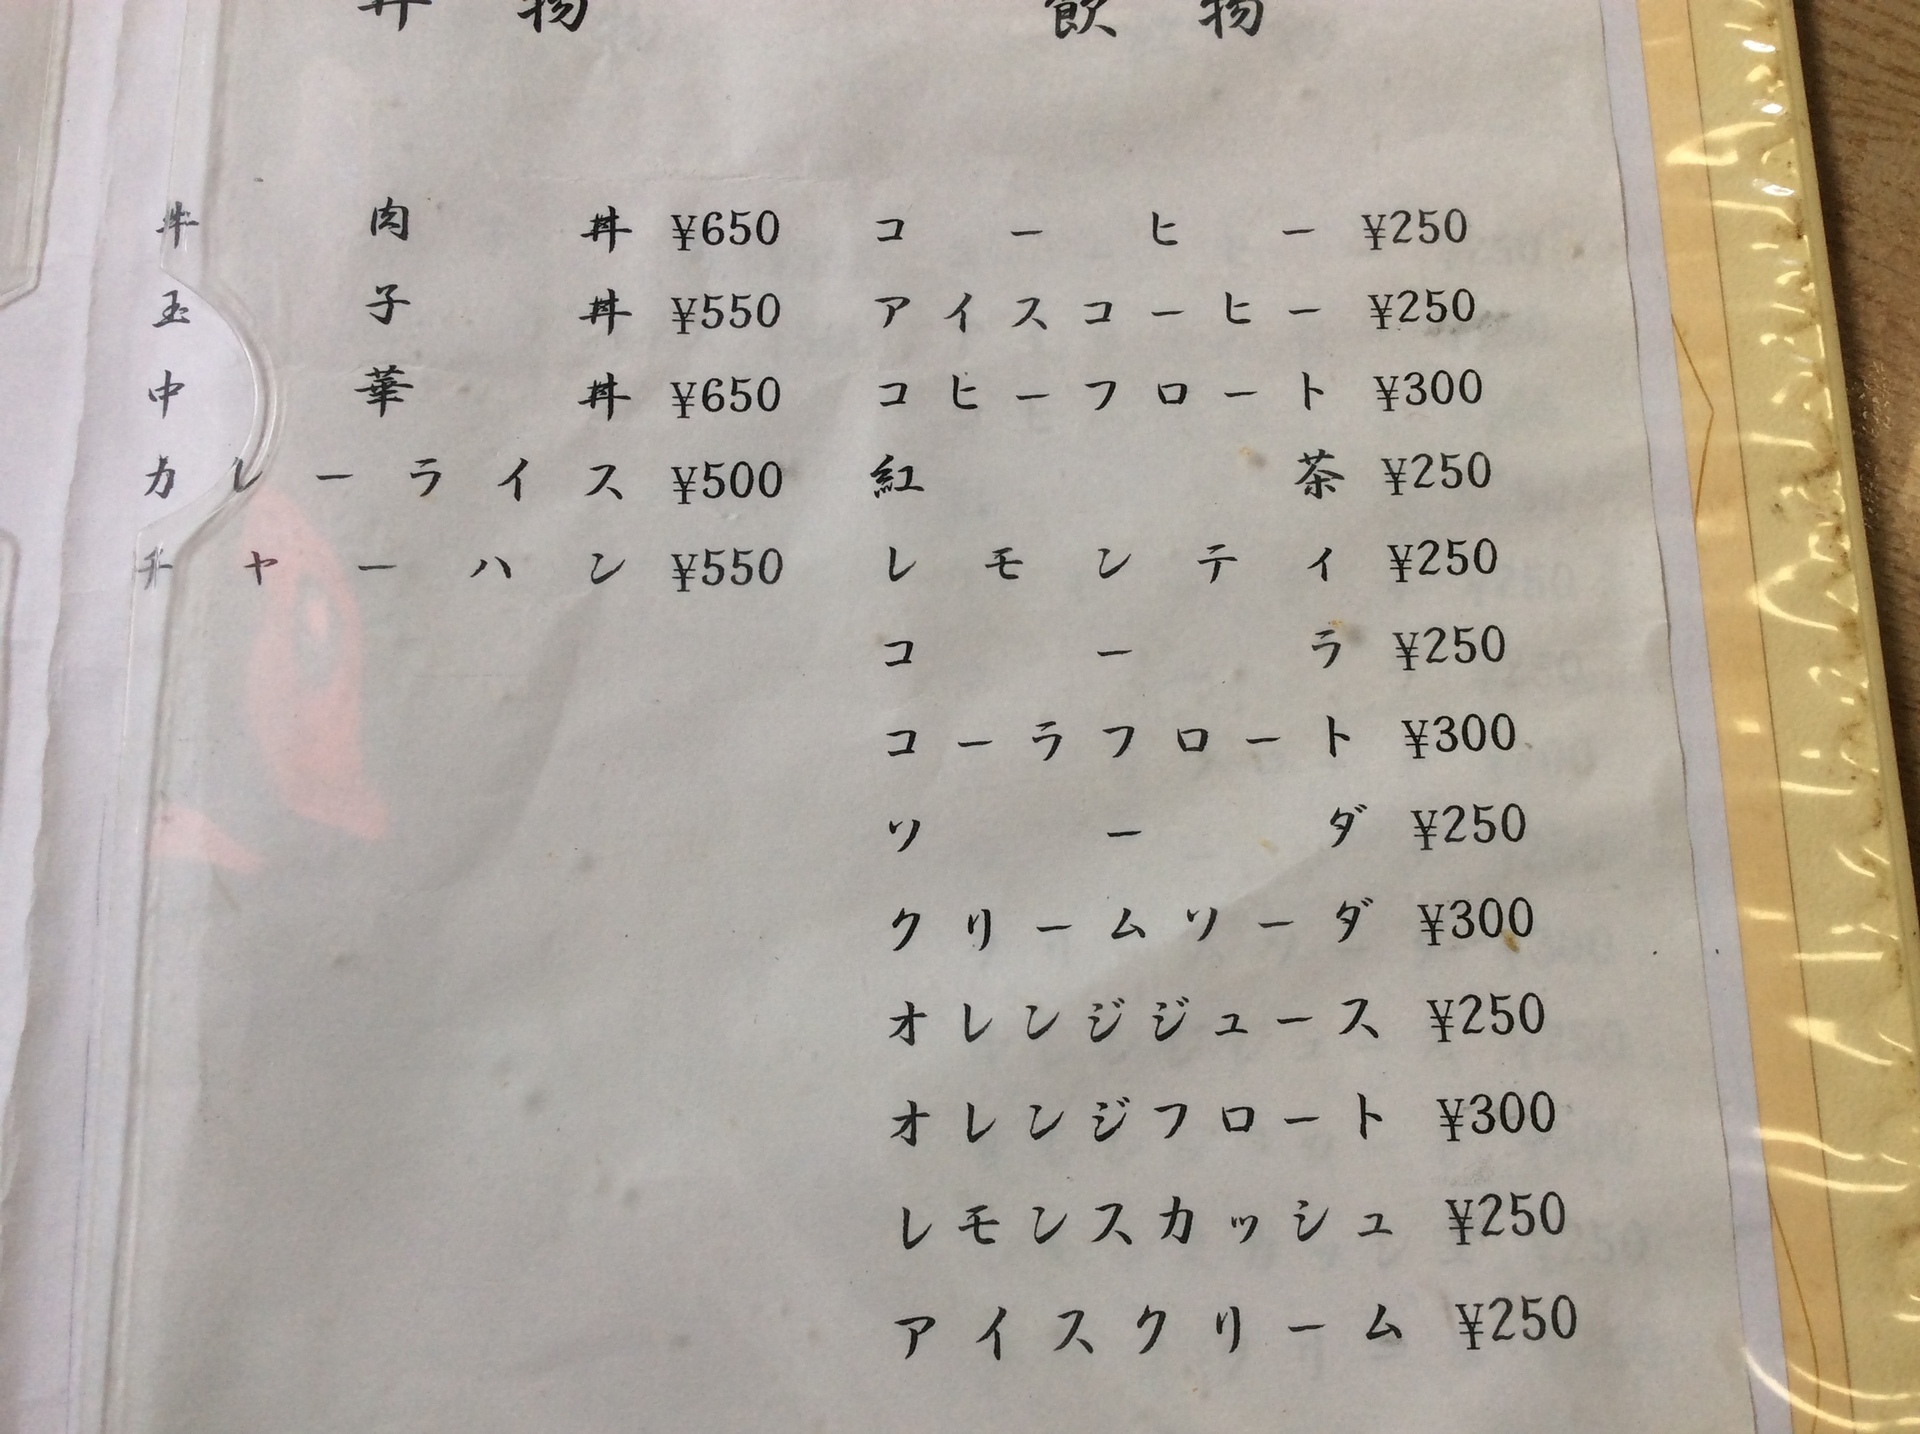 丼物
牛肉丼 ¥650
玉子丼 ¥550
中華丼 ¥650
カレーライス ¥500
チャーハン ¥550
飲物
コーヒー ¥250
アイスコーヒー ¥250
コヒーフロート ¥300
紅茶 ¥250
レモンティ ¥250
コーラ ¥250
コーラフロート ¥300
ソーダ ¥250
クリームソーダ ¥300
オレンジジュース ¥250
オレンジフロート ¥300
レモンスカッシュ ¥250
アイスクリーム ¥250